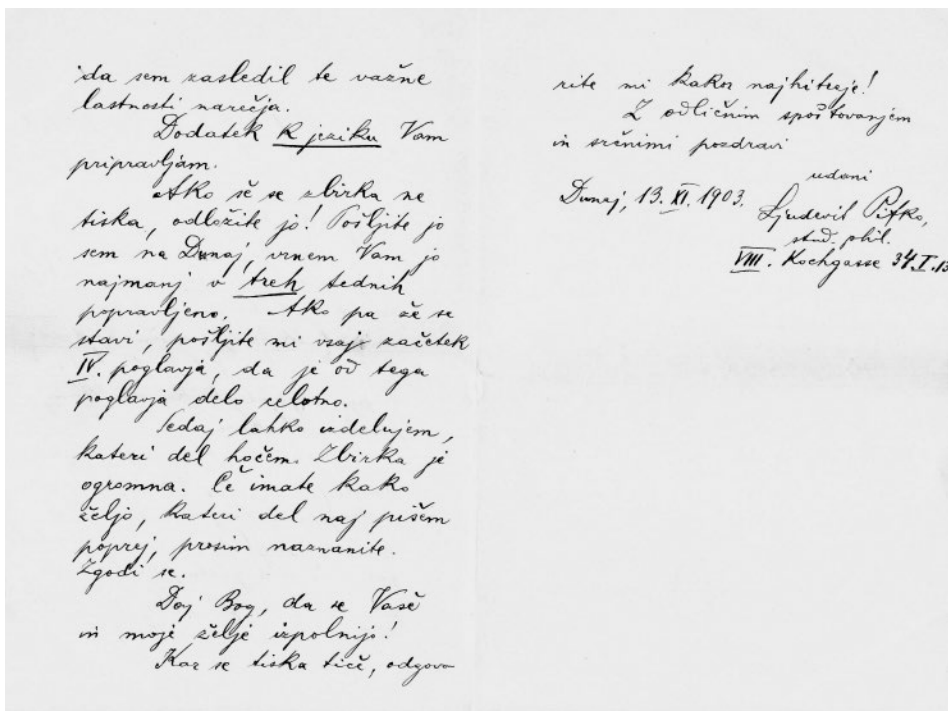 da sem zasledil te važne
lastnosti narečja.
Dodatek k jeziku Vam
pripravljam.
Ako še se zbirka ne
tiska, odložite jo! Pošljite jo
sem na Dunaj, vrnem Vam jo
najmanj v treh tednih
popravljeno. Ako pa že se
stavi, pošljite mi vsaj začetek
IV. poglavja, da je od tega
poglavja delo celotno.
Sedaj lahko izdelujem,
kateri del hočem. Zbirka je
ogromna. Če imate kako
željo, kateri del naj pišem
poprej, prosim naznanite.
Zgodi se.
Daj Bog, da se Vaše
in moje želje izpolnijo!
Kar se tiska tiče, odgovo
rite mi kakor najhitreje!
Z odličnim spoštovanjem
in srčnimi pozdravi
udani
Dunaj, 13. XI. 1903.
Ljudevit Pifko,
stud. phil.
VIII. Kochgasse 34 I. 13